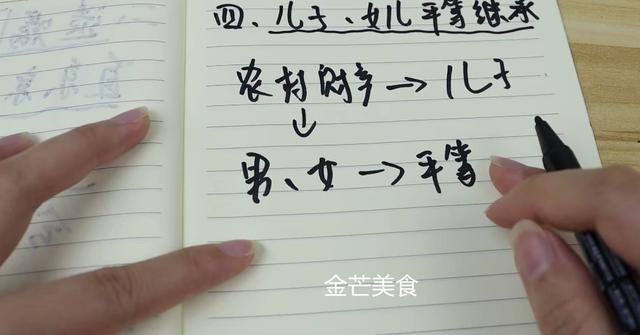 四、儿子、女儿平等继承
农村财产→儿子
↓
男、女→平等
金芒美食